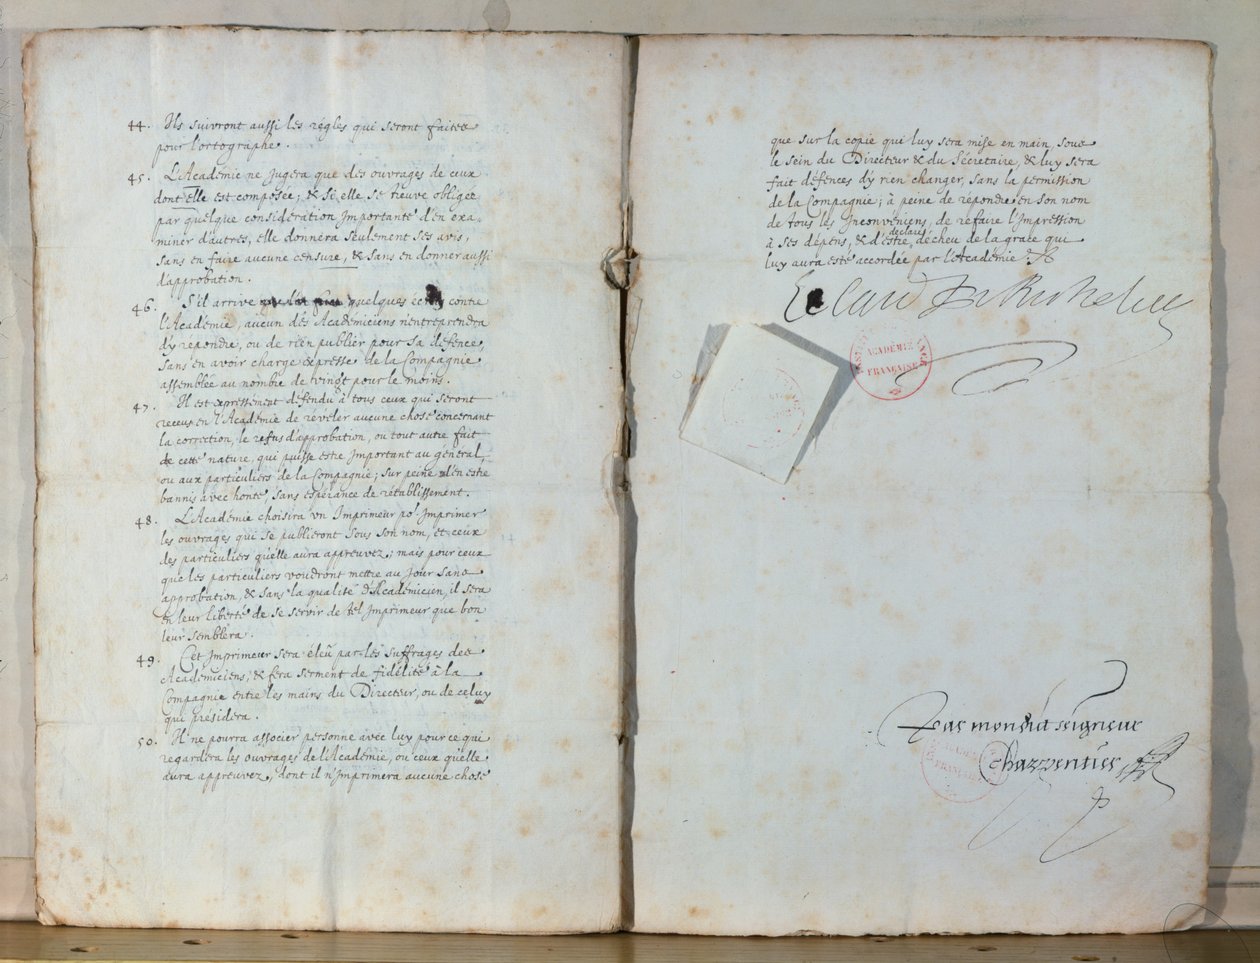 44. Ils suivront aussi les régles qui seront faites
pour l'ortographe.
45. L'Académie ne jugera que des ouvrages de ceux
dont elle est composée; & si elle se treuve obligée
par quelque considération importante d'en exa-
miner d'autres, elle donnera seulement ses avis,
sans en faire aucune censure, & sans en donner aussi
l'approbation.
46. S'il arrive quelques écrits contre
l'Académie, aucun des Académiciens n'entreprendra
d'y répondre, ou de rien publier pour sa défence,
sans en avoir charge expresse de la Compagnie
assemblée au nombre de vingt pour le moins.
47. Il est expressement défendu à tous ceux qui seront
receus en l'Académie de révéler aucune chose concernant
la correction, le refus d'approbation, ou tout autre fait
de cette nature, qui puisse estre important au général,
ou aux particuliers de la Compagnie; sur peine d'en estre
bannis avec honte, sans espérance de rétablissement.
48. L'Académie choisira un Imprimeur por imprimer
les ouvrages qui se publieront sous son nom, et ceux
des particuliers qu'elle aura appreuvez; mais pour ceux
que les particuliers voudront mettre au jour sans
approbation, & sans la qualité d'Académicien, il sera
en leur liberté de se servir de tel Imprimeur que bon
leur semblera.
49. Cet Imprimeur sera éleû par les suffrages des
Académiciens, & fera serment de fidélité à la
Compagnie entre les mains du Directeur, ou de celuy
qui présidera.
50. Il ne pourra associer personne avec luy pour ce qui
regardera les ouvrages de l'Académie, ou ceux qu'elle
aura appreuvez, dont il n'imprimera aucune chose
que sur la copie qui luy sera mise en main, sous
le sein du Directeur & du Sécretaire, & luy sera
fait défences d'y rien changer, sans la permission
de la Compagnie; à peine de répondre en son nom
de tous les inconveniens, de refaire l'Impression
à ses dépens, & d'estre déclaré décheu de la grace qui
luy aura esté accordée par l'Académie.
Le Card. De Richelieu
INSTITUT
ACADÉMIE
FRANÇAISE
Par mondit seigneur
Charpentier
ACADÉMIE
FRANÇAISE